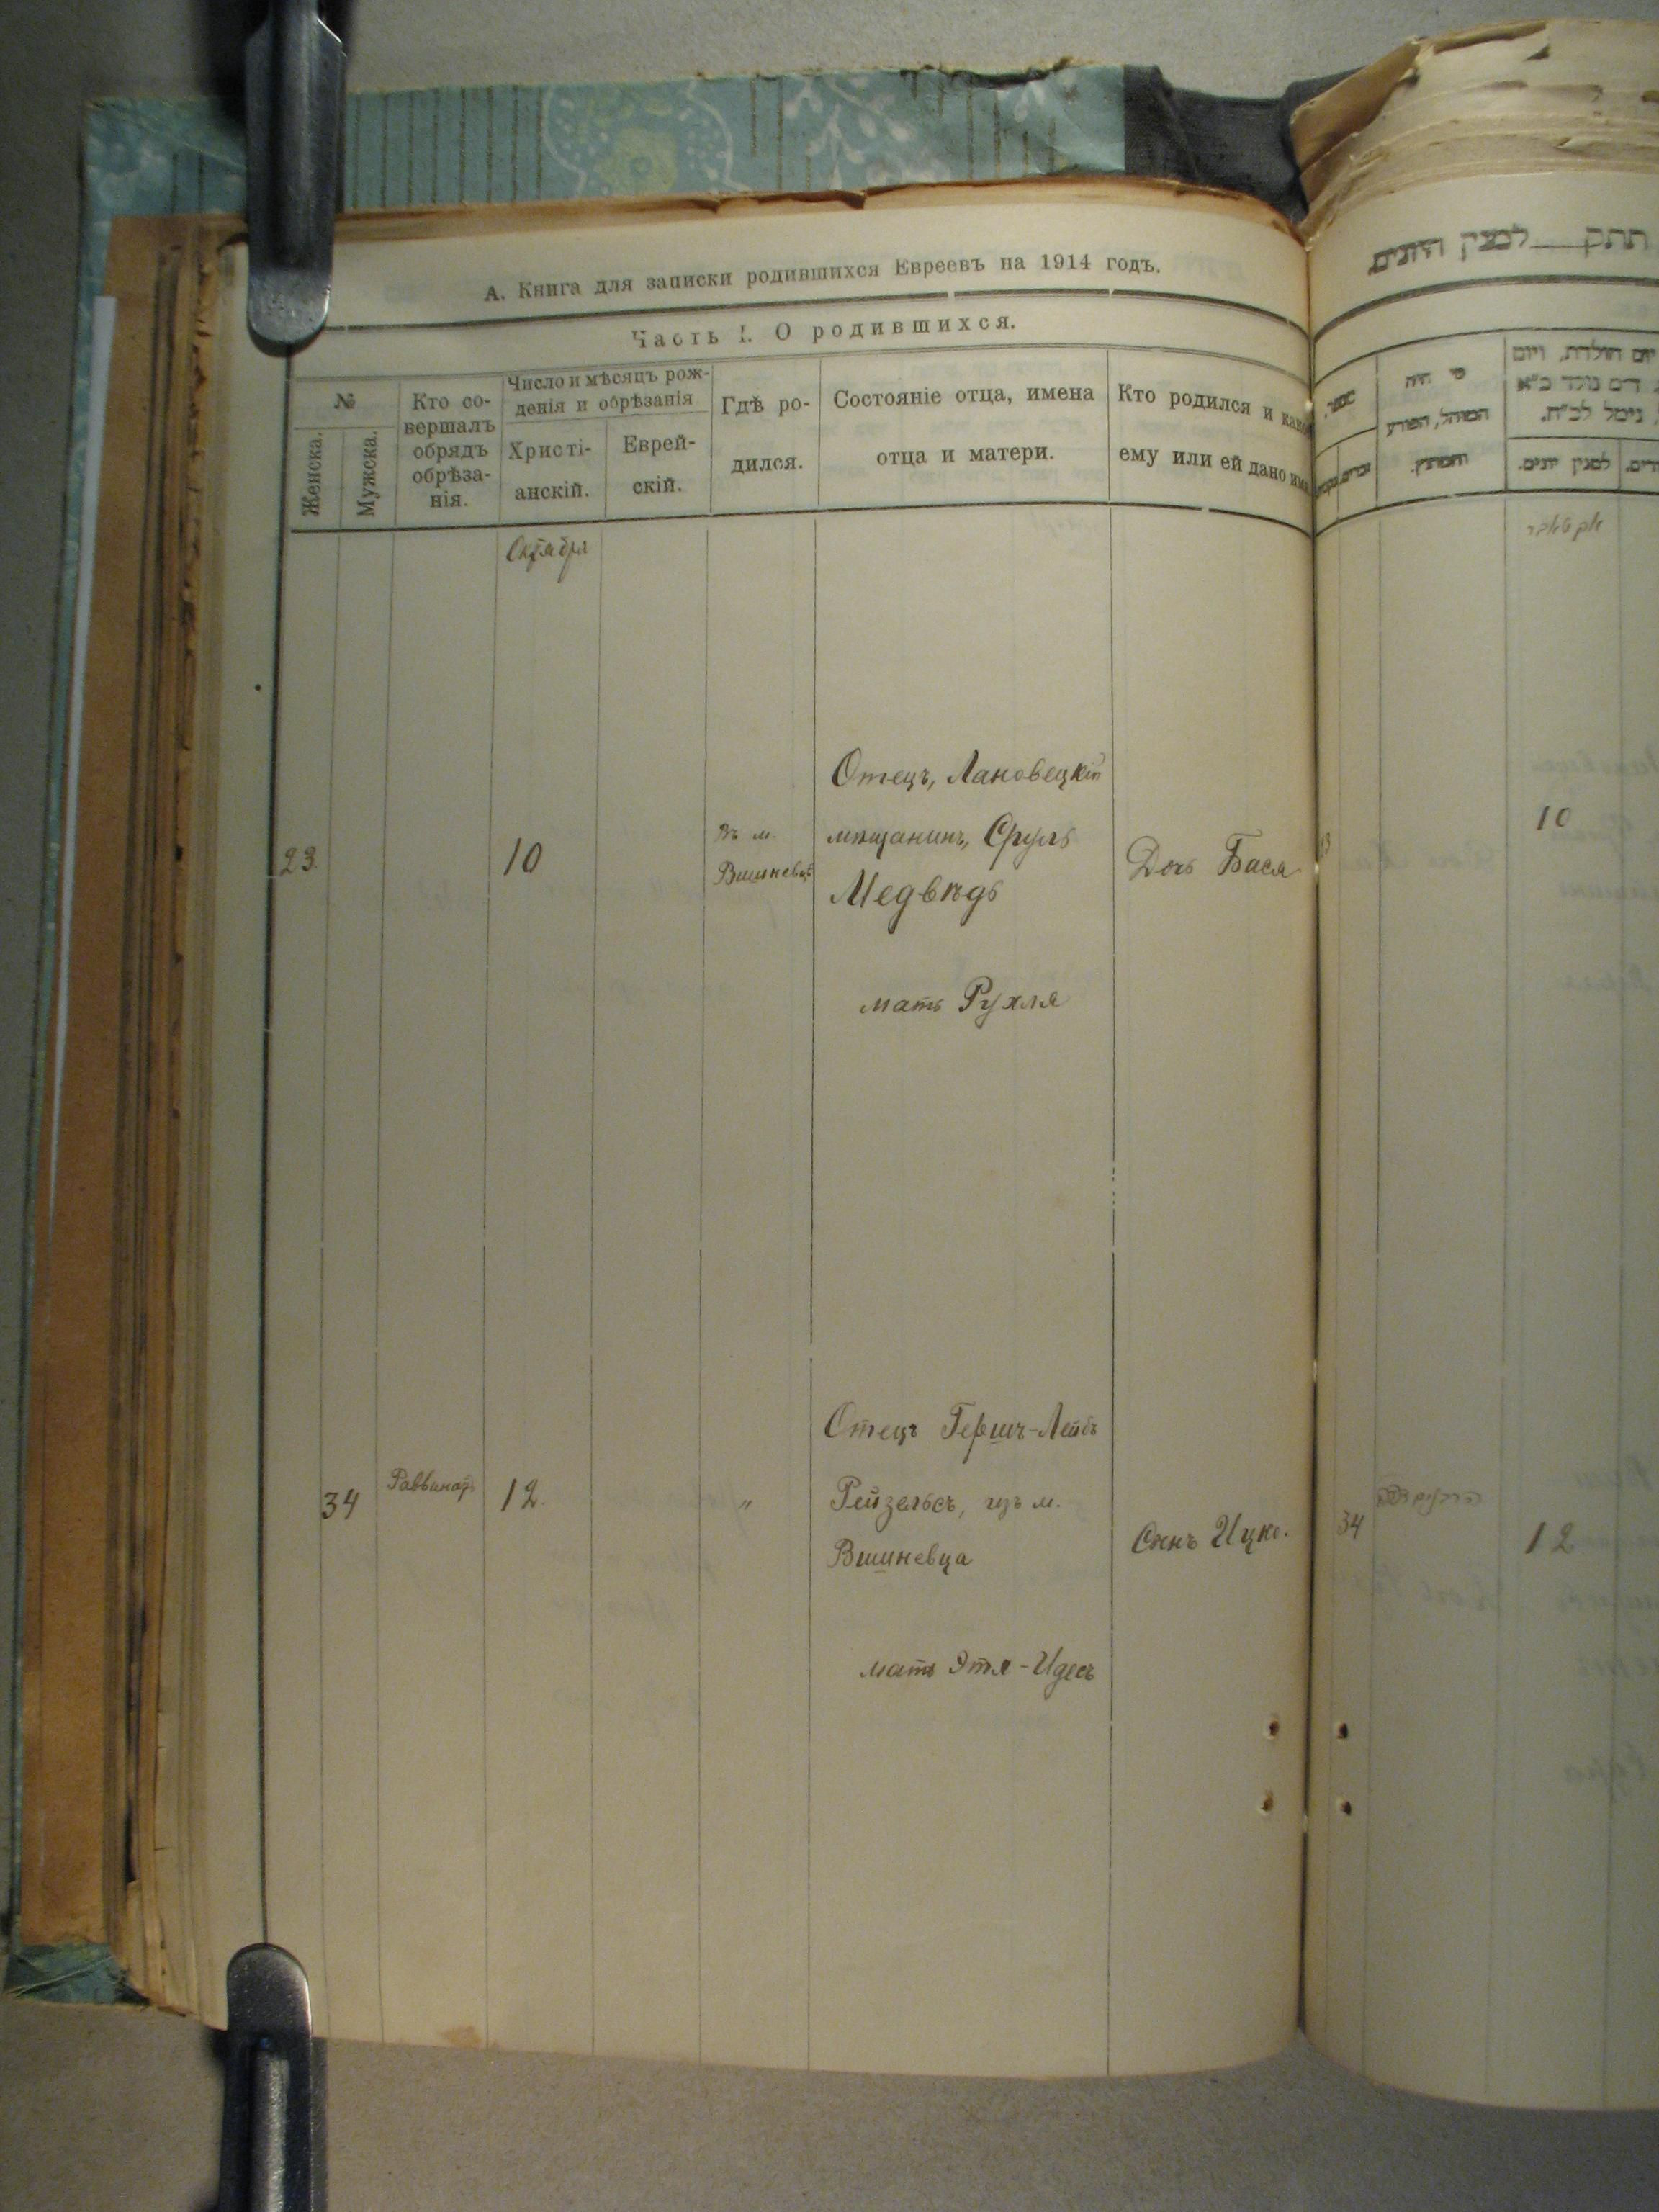 А. Книга для записки родившихся Евреевъ на 1914 годъ.
Часть I. О родившихся.
№
Женска.
Мужска.
Кто со-
вершалъ
обрядъ
обрѣза-
нія.
Число и мѣсяцъ рож-
денія и обрѣзанія
Христі-
анскій.
Еврей-
скій.
Гдѣ ро-
дился.
Состояніе отца, имена
отца и матери.
Кто родился и како
ему или ей дано имя
Октября
23.
10
Въ м.
Вишневцѣ
Отецъ, Лановецкій
мѣщанинъ, Сруль
Медвѣдь
мать Рухля
Дочь Бася
34
Раввинатъ
12.
"
Отецъ Гершъ-Лейбъ
Рейзельсъ, изъ м.
Вишневца
мать Этля-Идесъ
Сынъ Ицко.
תתק למנין היונים
מספר.
זכרים.
מי היה
המוהל, הפורע
והמוצץ.
יום הולדת, ויום
למנין יונים.
אקטאבר
10
34
12